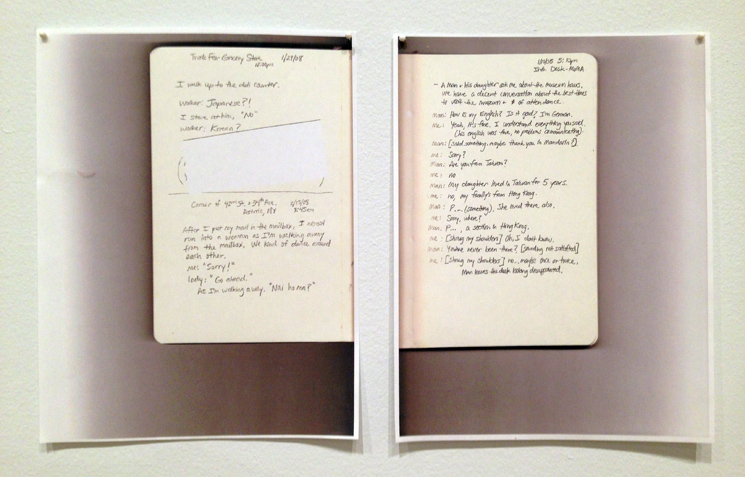 Trunk Fair Grocery Store 1/27/08
I walk up to the deli counter.
Worker: Japanese?!
I stare at him, "No"
Worker: Korean?
Corner of 42nd St. + 34th Ave.
Astoria, NY
After I put my mail in the mailbox, I almost
run into a woman as I'm walking away
from the mailbox. We kind of dance around
each other.
me: "Sorry!"
lady: "Go ahead."
As I'm walking away, "Nǐ hǎo ma?"
Info Desk - MoMA
- A man + his daughter ask me about the museum hours,
we have a decent conversation about the best times
to visit the museum + # of attendance.
man: How is my English? Is it good? I'm German.
me: Yeah, it's fine. I understand everything you said.
(his english was fine, no problems communicating)
man: [said something, maybe thank you in mandarin?]
me: Sorry?
man: Are you from Taiwan?
me: no
man: My daughter lived in Taiwan for 5 years.
me: no, my family's from Hong Kong.
man: P... (something), she lived there also.
me: Sorry, where?
man: P..., a section in Hong Kong.
me: [shrug my shoulders] Oh, I don't know.
man: You've never been there? [sounding not satisfied]
me: [shrug my shoulders] no, maybe once or twice.
Man leaves the desk looking disappointed.